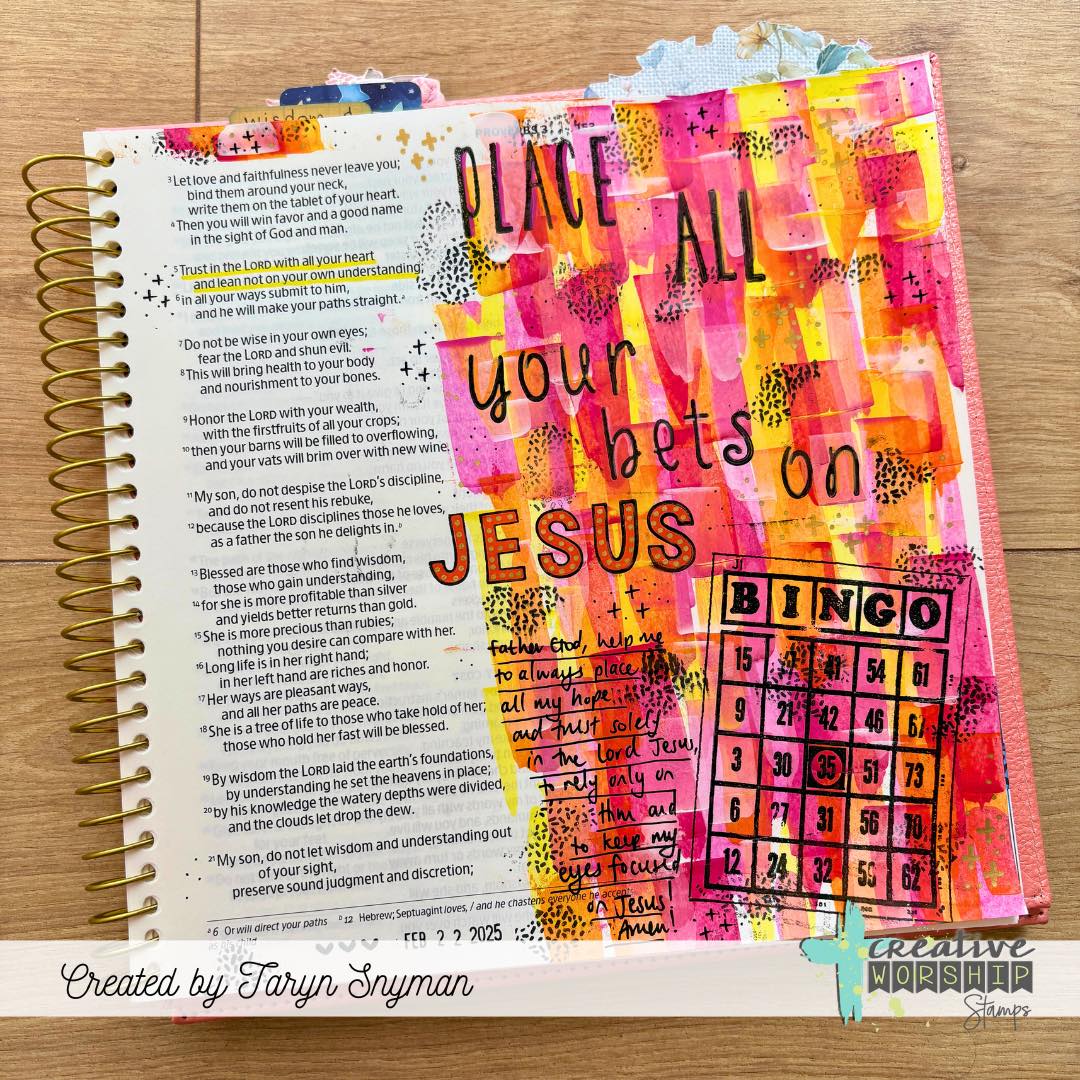 wisdom
PROVERBS 3
3 Let love and faithfulness never leave you;
bind them around your neck,
write them on the tablet of your heart.
4 Then you will win favor and a good name
in the sight of God and man.
5 Trust in the LORD with all your heart
and lean not on your own understanding;
6 in all your ways submit to him,
and he will make your paths straight.a
7 Do not be wise in your own eyes;
fear the LORD and shun evil.
8 This will bring health to your body
and nourishment to your bones.
9 Honor the LORD with your wealth,
with the firstfruits of all your crops;
10 then your barns will be filled to overflowing,
and your vats will brim over with new wine.
11 My son, do not despise the LORD's discipline,
and do not resent his rebuke,
12 because the LORD disciplines those he loves,
as a father the son he delights in.b
13 Blessed are those who find wisdom,
those who gain understanding,
14 for she is more profitable than silver
and yields better returns than gold.
15 She is more precious than rubies;
nothing you desire can compare with her.
16 Long life is in her right hand;
in her left hand are riches and honor.
17 Her ways are pleasant ways,
and all her paths are peace.
18 She is a tree of life to those who take hold of her;
those who hold her fast will be blessed.
19 By wisdom the LORD laid the earth's foundations,
by understanding he set the heavens in place;
20 by his knowledge the watery depths were divided,
and the clouds let drop the dew.
21 My son, do not let wisdom and understanding out
of your sight,
preserve sound judgment and discretion;
a 6 Or will direct your paths b 12 Hebrew; Septuagint loves, / and he chastens everyone he accepts
child
FEB 22 2025
PLACE
ALL
your
bets on
JESUS
Father God, help me
to always place
all my hope
and trust solely
in the Lord Jesus,
to rely only on
Him and
to keep my
eyes focused
on Jesus!
Amen!
BINGO
15 41 54 61
9 21 42 46 67
3 30 35 51 73
6 27 31 56 70
12 24 32 62
Created by Taryn Snyman
creative
WORSHIP
Stamps